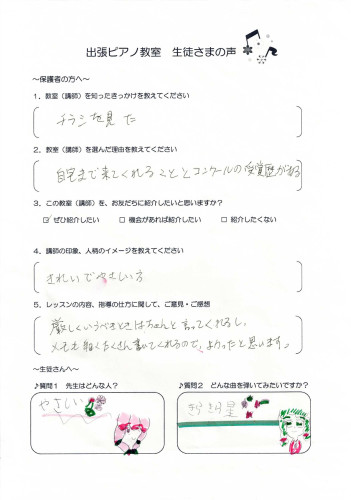 出張ピアノ教室　生徒さまの声
～保護者の方へ～
1．教室（講師）を知ったきっかけを教えてください
チラシを見た
2．教室（講師）を選んだ理由を教えてください
自宅まで来てくれることとコンクールの受賞歴がある
3．この教室（講師）を、お友だちに紹介したいと思いますか？
☑ ぜひ紹介したい　□ 機会があれば紹介したい　□ 紹介したくない
4．講師の印象、人柄のイメージを教えてください
きれいでやさしい方
5．レッスンの内容、指導の仕方に関して、ご意見・ご感想
厳しくいうべきときはちゃんと言ってくれるし、
メモも たくさん書いてくれるので、よかったと思います。
～生徒さんへ～
♪質問1　先生はどんな人？　♪質問2　どんな曲を弾いてみたいですか？
やさしい　きらきら星